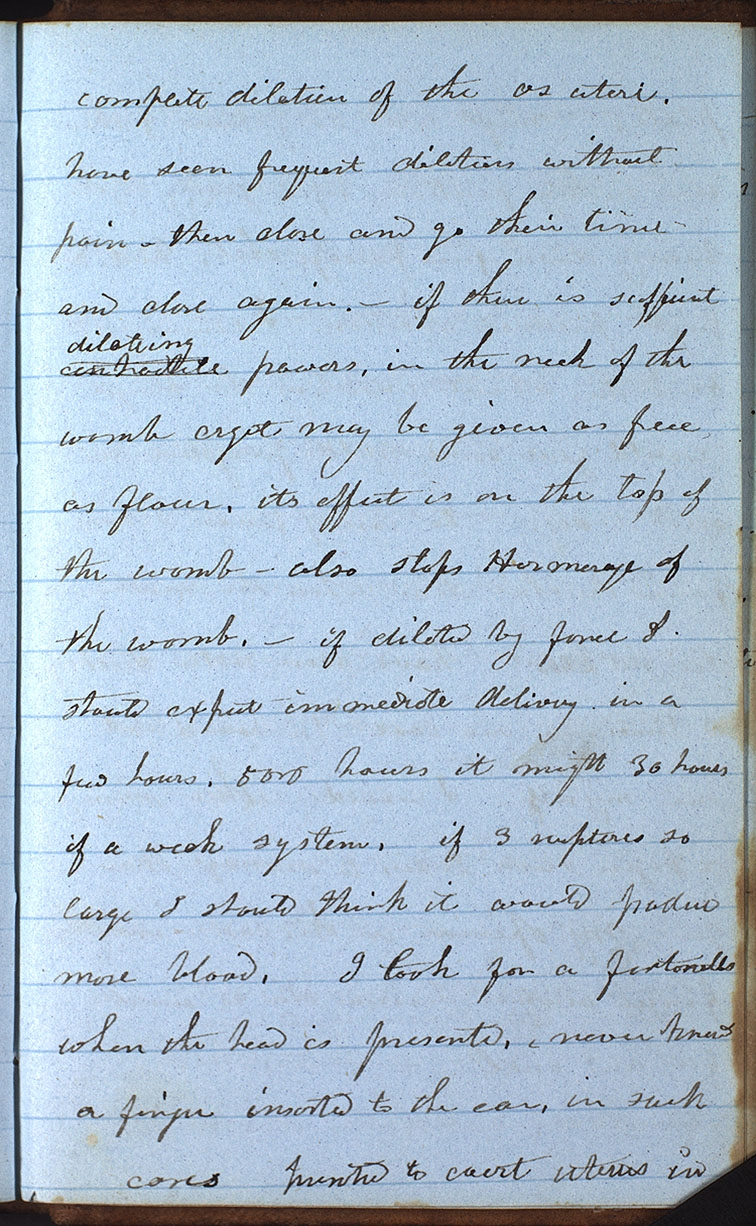 complete dilation of the os uteri.
have seen frequent dilations without
pain - then close and go their time
and close again. - if there is sufficient
dilating
contractile powers, in the neck of the
womb ergot may be given as free
as flour, its effect is on the top of
the womb - also stops Hormorage of
the womb. - if dilated by force I.
should expect immediate delivery in a
few hours, 5 or 6 hours it might 30 hours
if a weak system. if 3 ruptures so
large I should think it would produce
more blood. I look for a fontanells
when the head is presented, never knew
a finger inserted to the ear, in such
cases uterus in